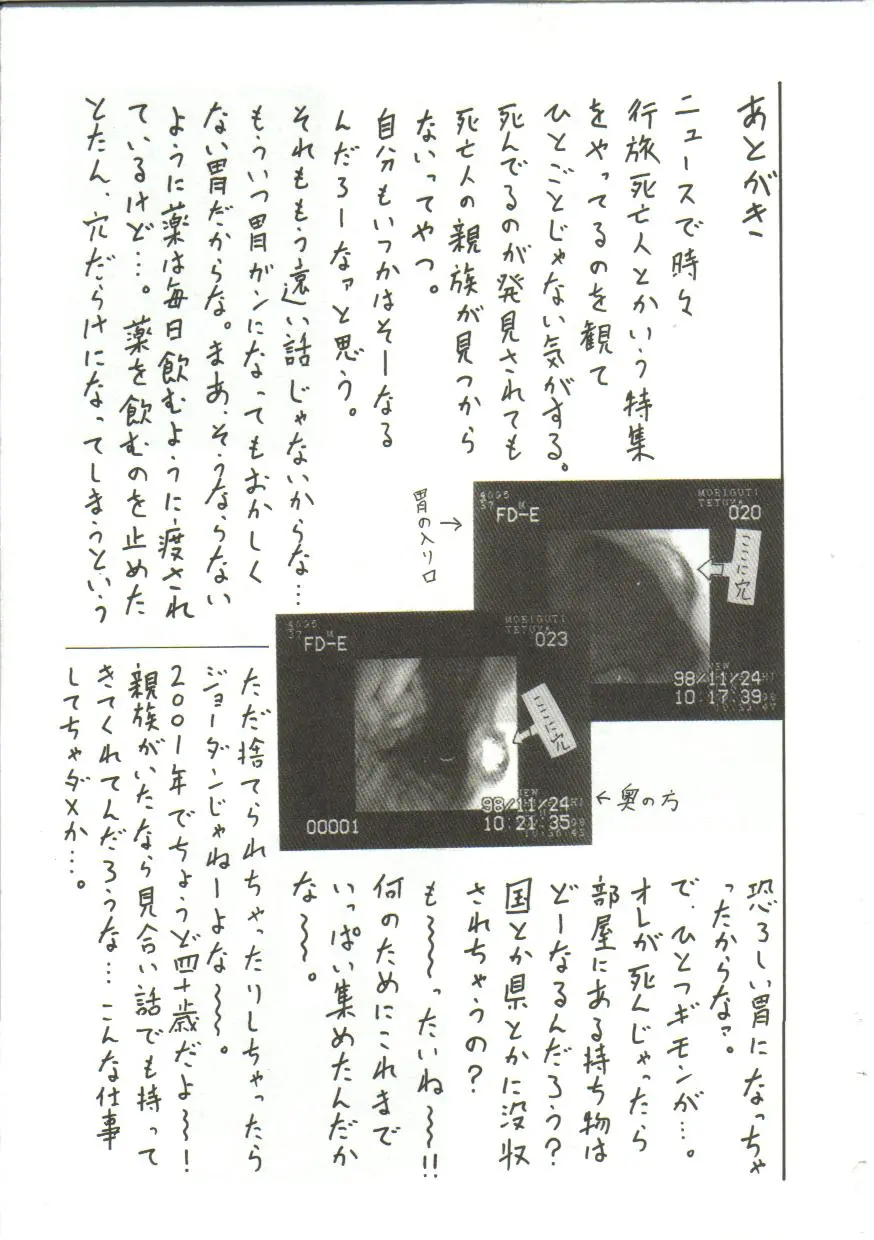 あとがき
ニュースで時々
行旅死亡人とかいう特集
をやってるのを観て
ひとごとじゃない気がする。
死んでるのが発見されても
死亡人の親族が見つから
ないってやつ。
自分もいつかはそーなる
んだろーなァと思う。
それももう遠い話じゃないからな…
もういつ胃ガンになってもおかしく
ない胃だからな。まあ、そうならない
ように薬は毎日飲むように渡され
ているけど…。薬を飲むのを止めた
とたん、穴だらけになってしまうという
恐ろしい胃になっちゃ
ったからなァ。
で、ひとつギモンが…。
オレが死んじゃったら
部屋にある持ち物は
どーなるんだろう？
国とか県とかに没収
されちゃうの？
も〜〜ったいね〜〜!!
何のためにこれまで
いっぱい集めたんだか
な〜〜。
ただ捨てられちゃったりしちゃったら
ジョーダンじゃねーよな〜〜。
2001年でちょうど四十歳だよ〜〜！
親族がいたなら見合い話でも持って
きてくれてんだろうな… こんな仕事
してちゃダメか…。
胃の入り口→
4095
37 M
FD-E
MORIGUTI
TETUYA
020
ここに穴
98/11/24
10:17:39
4095
37 M
FD-E
MORIGUTI
TETUYA
023
ここに穴
98/11/24
10:21:35
00001
←奥の方